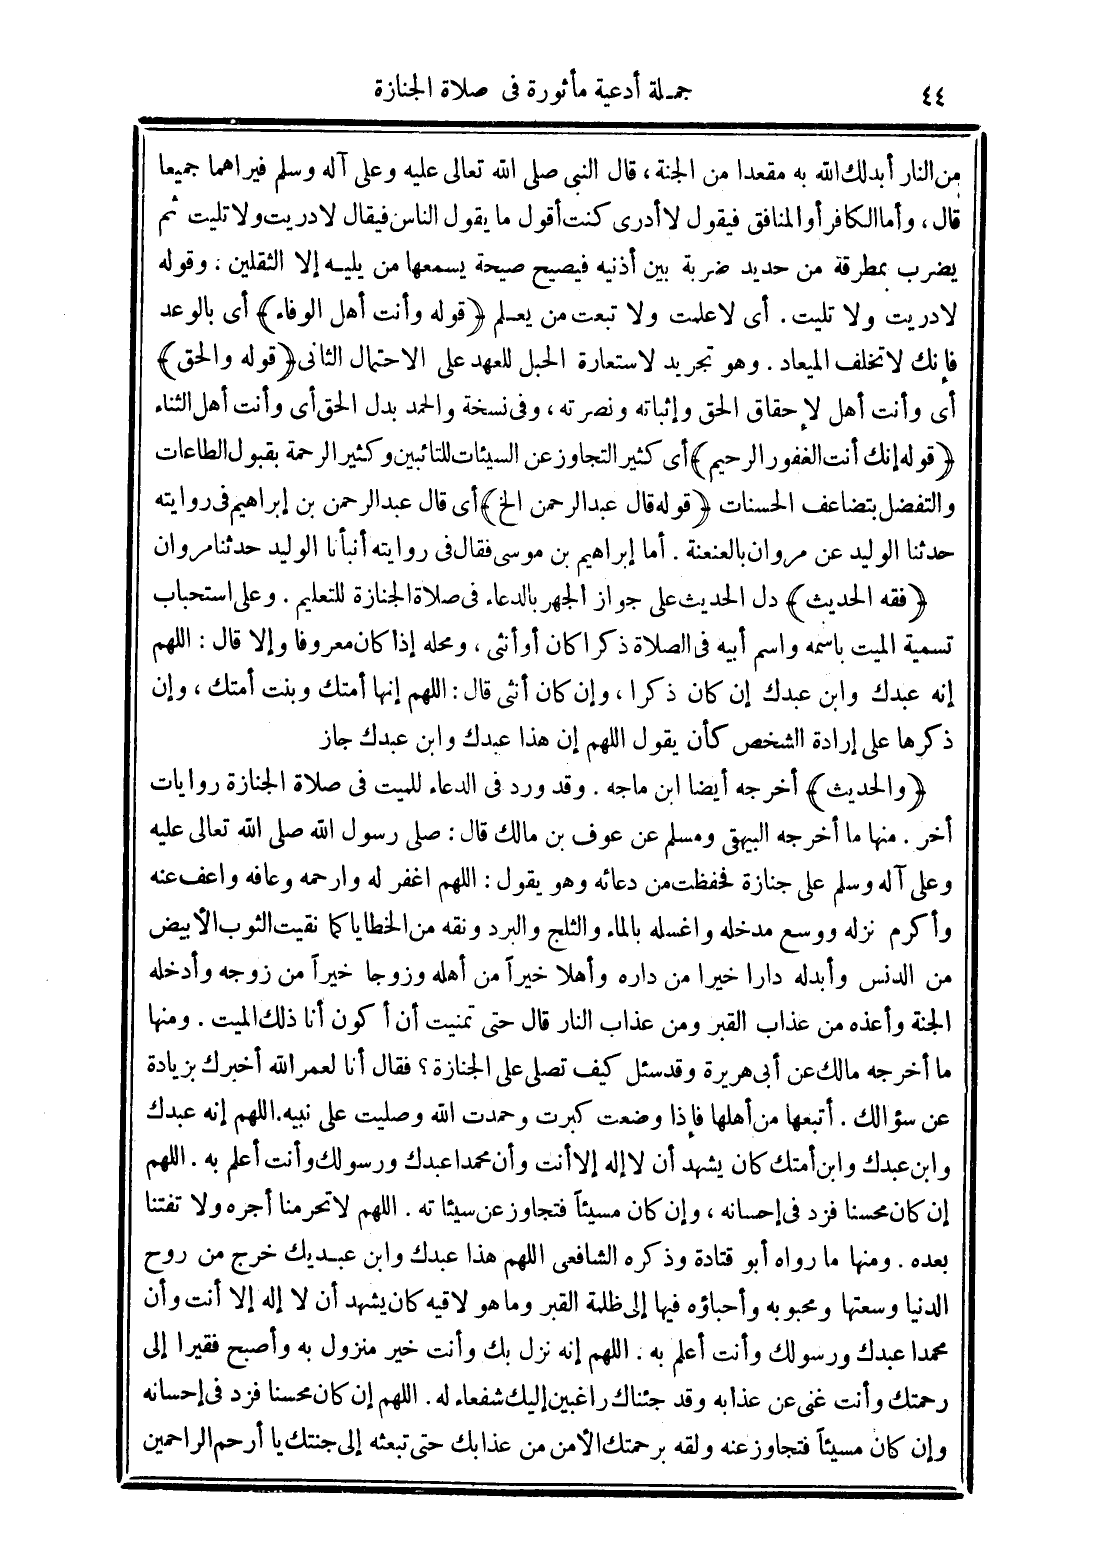 ٤٤ جمـلة أدعية مأثورة فى صلاة الجنازة
من النار أبدلك الله به مقعدا من الجنة ، قال النبى صلى الله تعالى عليه وعلى آله وسلم فيراهما جميعا
قال ، وأما الكافر أو المنافق فيقول لا أدرى كنت أقول ما يقول الناس فيقال لا دريت ولا تليت ثم
يضرب بمطرقة من حديد ضربة بين أذنيه فيصيح صيحة يسمعها من يليـه إلا الثقلين . وقوله
لا دريت ولا تليت . أى لا علمت ولا تبعت من يعـلم ﴿قوله وأنت أهل الوفاء﴾ أى بالوعد
فإنك لا تخلف الميعاد . وهو تجريد لاستعارة الحبل للعهد على الاحتمال الثانى ﴿قوله والحق﴾
أى وأنت أهل لإحقاق الحق وإثباته ونصرته ، وفى نسخة والحمد بدل الحق أى وأنت أهل الثناء
﴿قوله إنك أنت الغفور الرحيم﴾ أى كثير التجاوز عن السيئات للتائبين وكثير الرحمة بقبول الطاعات
والتفضل بتضاعف الحسنات ﴿قوله قال عبد الرحمن الخ﴾ أى قال عبد الرحمن بن إبراهيم فى روايته
حدثنا الوليد عن مروان بالعنعنة . أما إبراهيم بن موسى فقال فى روايته أنبأنا الوليد حدثنا مروان
﴿فقه الحديث﴾ دل الحديث على جواز الجهر بالدعاء فى صلاة الجنازة للتعليم . وعلى استحباب
تسمية الميت باسمه واسم أبيه فى الصلاة ذكرا كان أو أنثى ، ومحله إذا كان معروفا وإلا قال : اللهم
إنه عبدك وابن عبدك إن كان ذكرا ، وإن كان أنثى قال : اللهم إنها أمتك وبنت أمتك ، وإن
ذكرها على إرادة الشخص كأن يقول اللهم إن هذا عبدك وابن عبدك جاز
﴿والحديث﴾ أخرجه أيضا ابن ماجه . وقد ورد فى الدعاء للميت فى صلاة الجنازة روايات
أخر . منها ما أخرجه البيهقى ومسلم عن عوف بن مالك قال : صلى رسول الله صلى الله تعالى عليه
وعلى آله وسلم على جنازة فحفظت من دعائه وهو يقول : اللهم اغفر له وارحمه وعافه واعف عنه
وأكرم نزله ووسع مدخله واغسله بالماء والثلج والبرد ونقه من الخطايا كما نقيت الثوب الأبيض
من الدنس وأبدله دارا خيرا من داره وأهلا خيراً من أهله وزوجا خيراً من زوجه وأدخله
الجنة وأعذه من عذاب القبر ومن عذاب النار قال حتى تمنيت أن أكون أنا ذلك الميت . ومنها
ما أخرجه مالك عن أبى هريرة وقد سئل كيف تصلى على الجنازة ؟ فقال أنا لعمر الله أخبرك بزيادة
عن سؤالك . أتبعها من أهلها فإذا وضعت كبرت وحمدت الله وصليت على نبيه . اللهم إنه عبدك
وابن عبدك وابن أمتك كان يشهد أن لا إله إلا أنت وأن محمدا عبدك ورسولك وأنت أعلم به . اللهم
إن كان محسنا فزد فى إحسانه ، وإن كان مسيئاً فتجاوز عن سيئاته . اللهم لا تحرمنا أجره ولا تفتنا
بعده . ومنها ما رواه أبو قتادة وذكره الشافعى اللهم هذا عبدك وابن عبـديك خرج من روح
الدنيا وسعتها ومحبوبه وأحباؤه فيها إلى ظلمة القبر وما هو لاقيه كان يشهد أن لا إله إلا أنت وأن
محمدا عبدك ورسولك وأنت أعلم به . اللهم إنه نزل بك وأنت خير منزول به وأصبح فقيرا إلى
رحمتك وأنت غنى عن عذابه وقد جئناك راغبين إليك شفعاء له . اللهم إن كان محسنا فزد فى إحسانه
وإن كان مسيئاً فتجاوز عنه ولقه برحمتك الأمن من عذابك حتى تبعثه إلى جنتك يا أرحم الراحمين